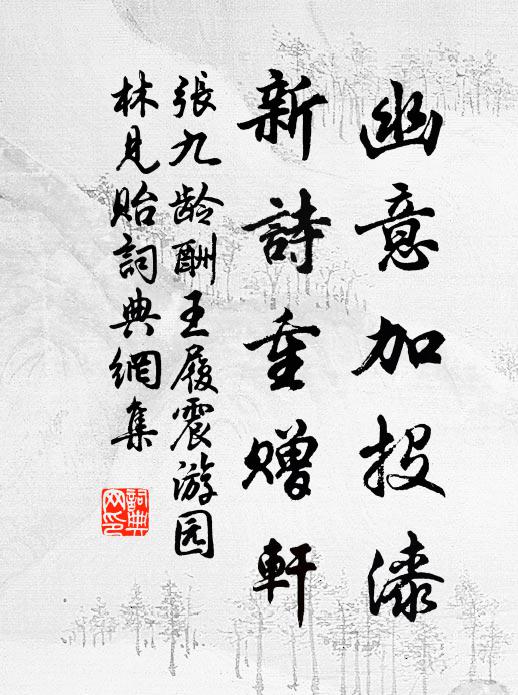 幽意加投漆
新詩重赠軒
張九龄酬王履震游园
林見貽詞典網集
詞典
网印